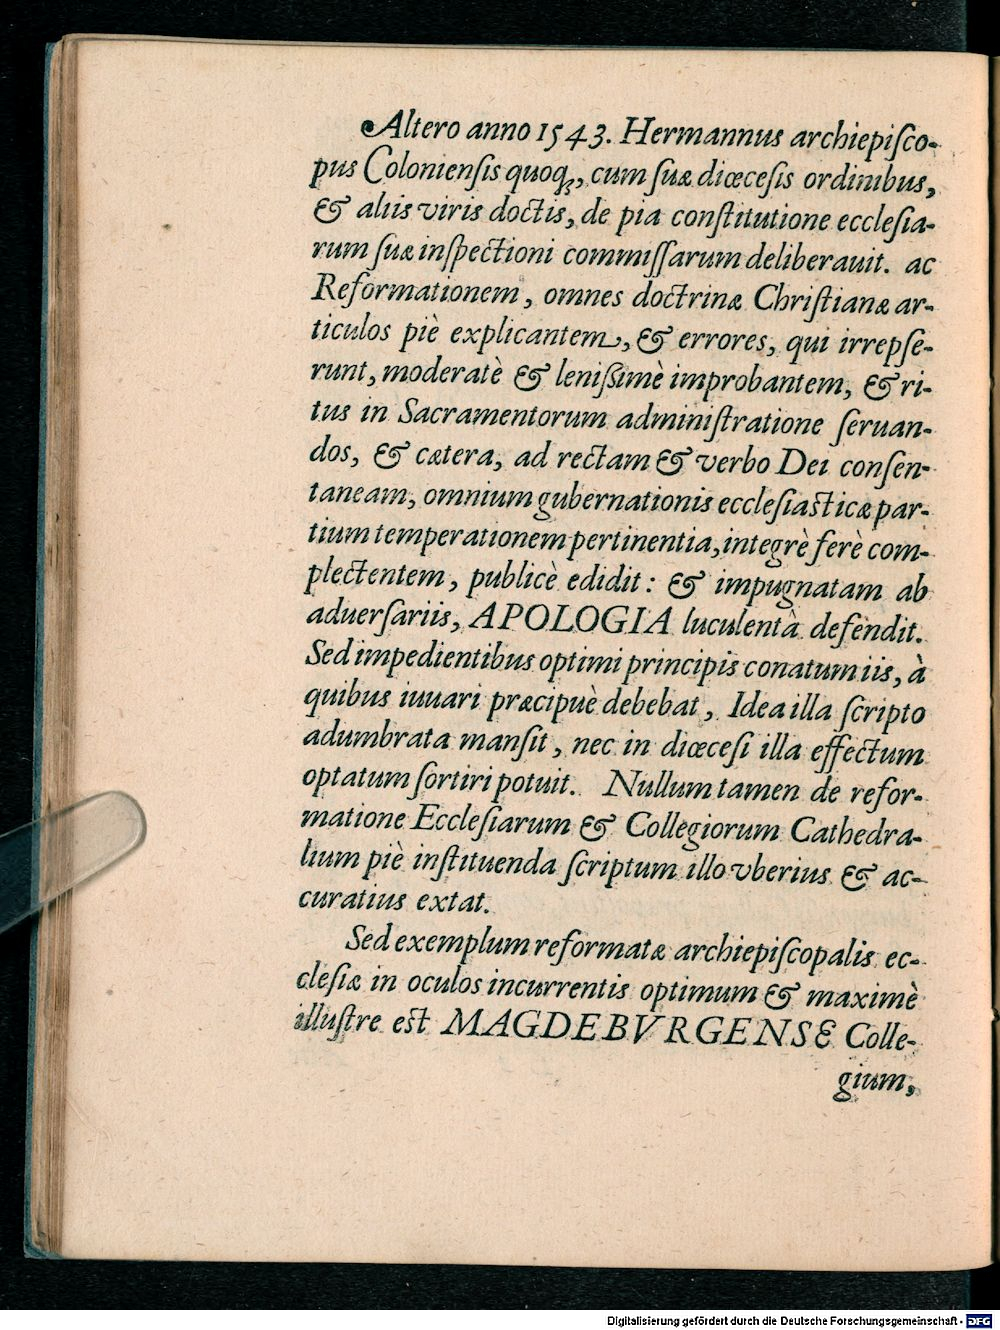 Altero anno 1543. Hermannus archiepiſco-
pus Colonienſis quoq;, cum ſuæ diœceſis ordinibus,
& aliis viris doctis, de pia conſtitutione eccleſia-
rum ſuæ inſpectioni commiſſarum deliberauit. ac
Reformationem, omnes doctrinæ Chriſtianæ ar-
ticulos piè explicantem, & errores, qui irrepſe-
runt, moderatè & leniſsimè improbantem, & ri-
tus in Sacramentorum adminiſtratione ſeruan-
dos, & cætera, ad rectam & verbo Dei conſen-
taneam, omnium gubernationis eccleſiaſticæ par-
tium temperationem pertinentia, integrè ferè com-
plectentem, publicè edidit: & impugnatam ab
aduerſariis, APOLOGIA luculentâ defendit.
Sed impedientibus optimi principis conatum iis, à
quibus iuuari præcipuè debebat, Idea illa ſcripto
adumbrata manſit, nec in diœceſi illa effectum
optatum ſortiri potuit. Nullum tamen de refor-
matione Eccleſiarum & Collegiorum Cathedra-
lium piè inſtituenda ſcriptum illo vberius & ac-
curatius extat.
Sed exemplum reformatæ archiepiſcopalis ec-
cleſiæ in oculos incurrentis optimum & maximè
illuſtre eſt MAGDEBVRGENSE Colle-
gium,
Digitalisierung gefördert durch die Deutsche Forschungsgemeinschaft - DFG